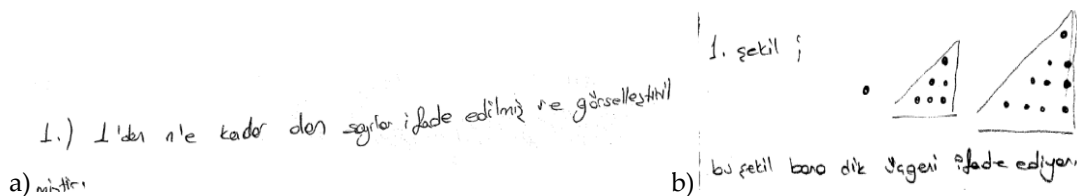 1.) 1'den n'e kadar olan sayılar ifade edilmiş ve görselleştiril
a) miştir.
1. şekil ;
b) bu şekil bana dik üçgeni ifade ediyor.